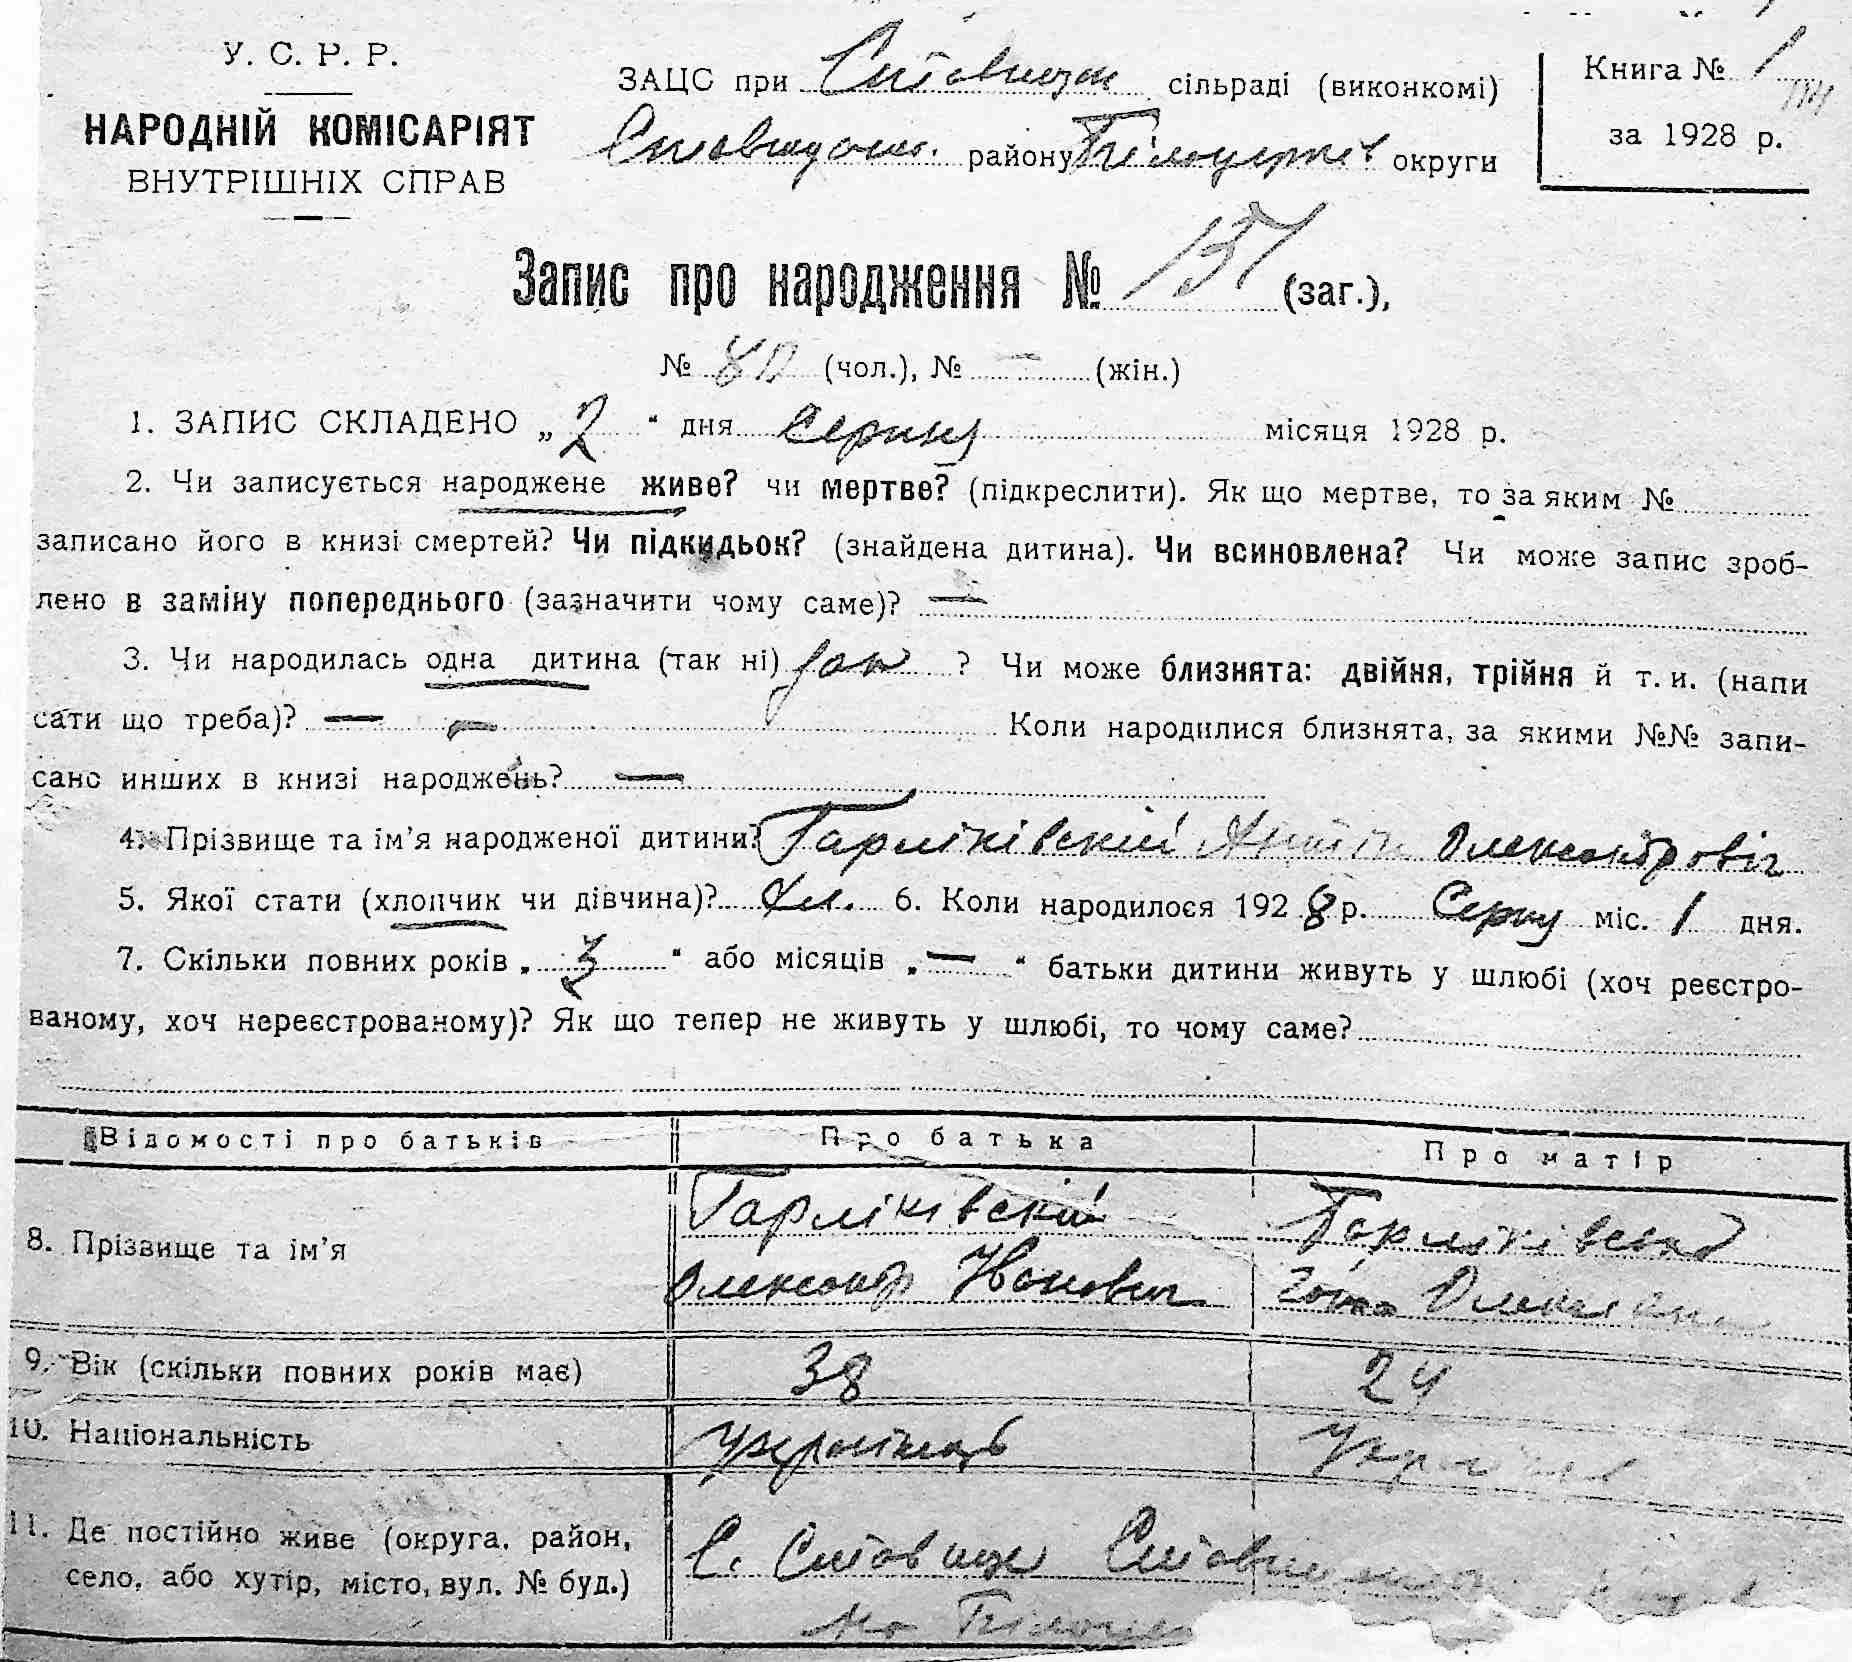 У. С. Р. Р.
НАРОДНІЙ КОМІСАРІЯТ
ВНУТРІШНІХ СПРАВ
ЗАЦС при Ставищан сільраді (виконкомі)
Ставищан. району Білоцерків округи
Книга № 1
за 1928 р.
Запис про народження № 151 (заг.),
№ 80 (чол.), № — (жін.)
1. ЗАПИС СКЛАДЕНО „2“ дня Серпня місяця 1928 р.
2. Чи записується народжене живе? чи мертве? (підкреслити). Як що мертве, то за яким №
записано його в книзі смертей? Чи підкидьок? (знайдена дитина). Чи всиновлена? Чи може запис зроб-
лено в заміну попереднього (зазначити чому саме)? —
3. Чи народилась одна дитина (так ні) так ? Чи може близнята: двійня, трійня й т. и. (напи
сати що треба)? — — Коли народилися близнята, за якими №№ запи-
сано инших в книзі народжень? —
4. Прізвище та ім’я народженої дитини? Гарліківский Антін Олександровіч
5. Якої стати (хлопчик чи дівчина)? Хл. 6. Коли народилося 1928 р. Серпн міс. 1 дня.
7. Скільки повних років „3“ або місяців „—“ батьки дитини живуть у шлюбі (хоч реєстро-
ваному, хоч нереєстрованому)? Як що тепер не живуть у шлюбі, то чому саме?
Відомості про батьків Про батька Про матір
8. Прізвище та ім’я
Гарліківский
Олександр Иванович
Гарліківська
9. Вік (скільки повних років має) 38 24
10. Національність українець Українка
11. Де постійно живе (округа, район,
село, або хутір, місто, вул. № буд.)
С. Ставище
на Білоцер